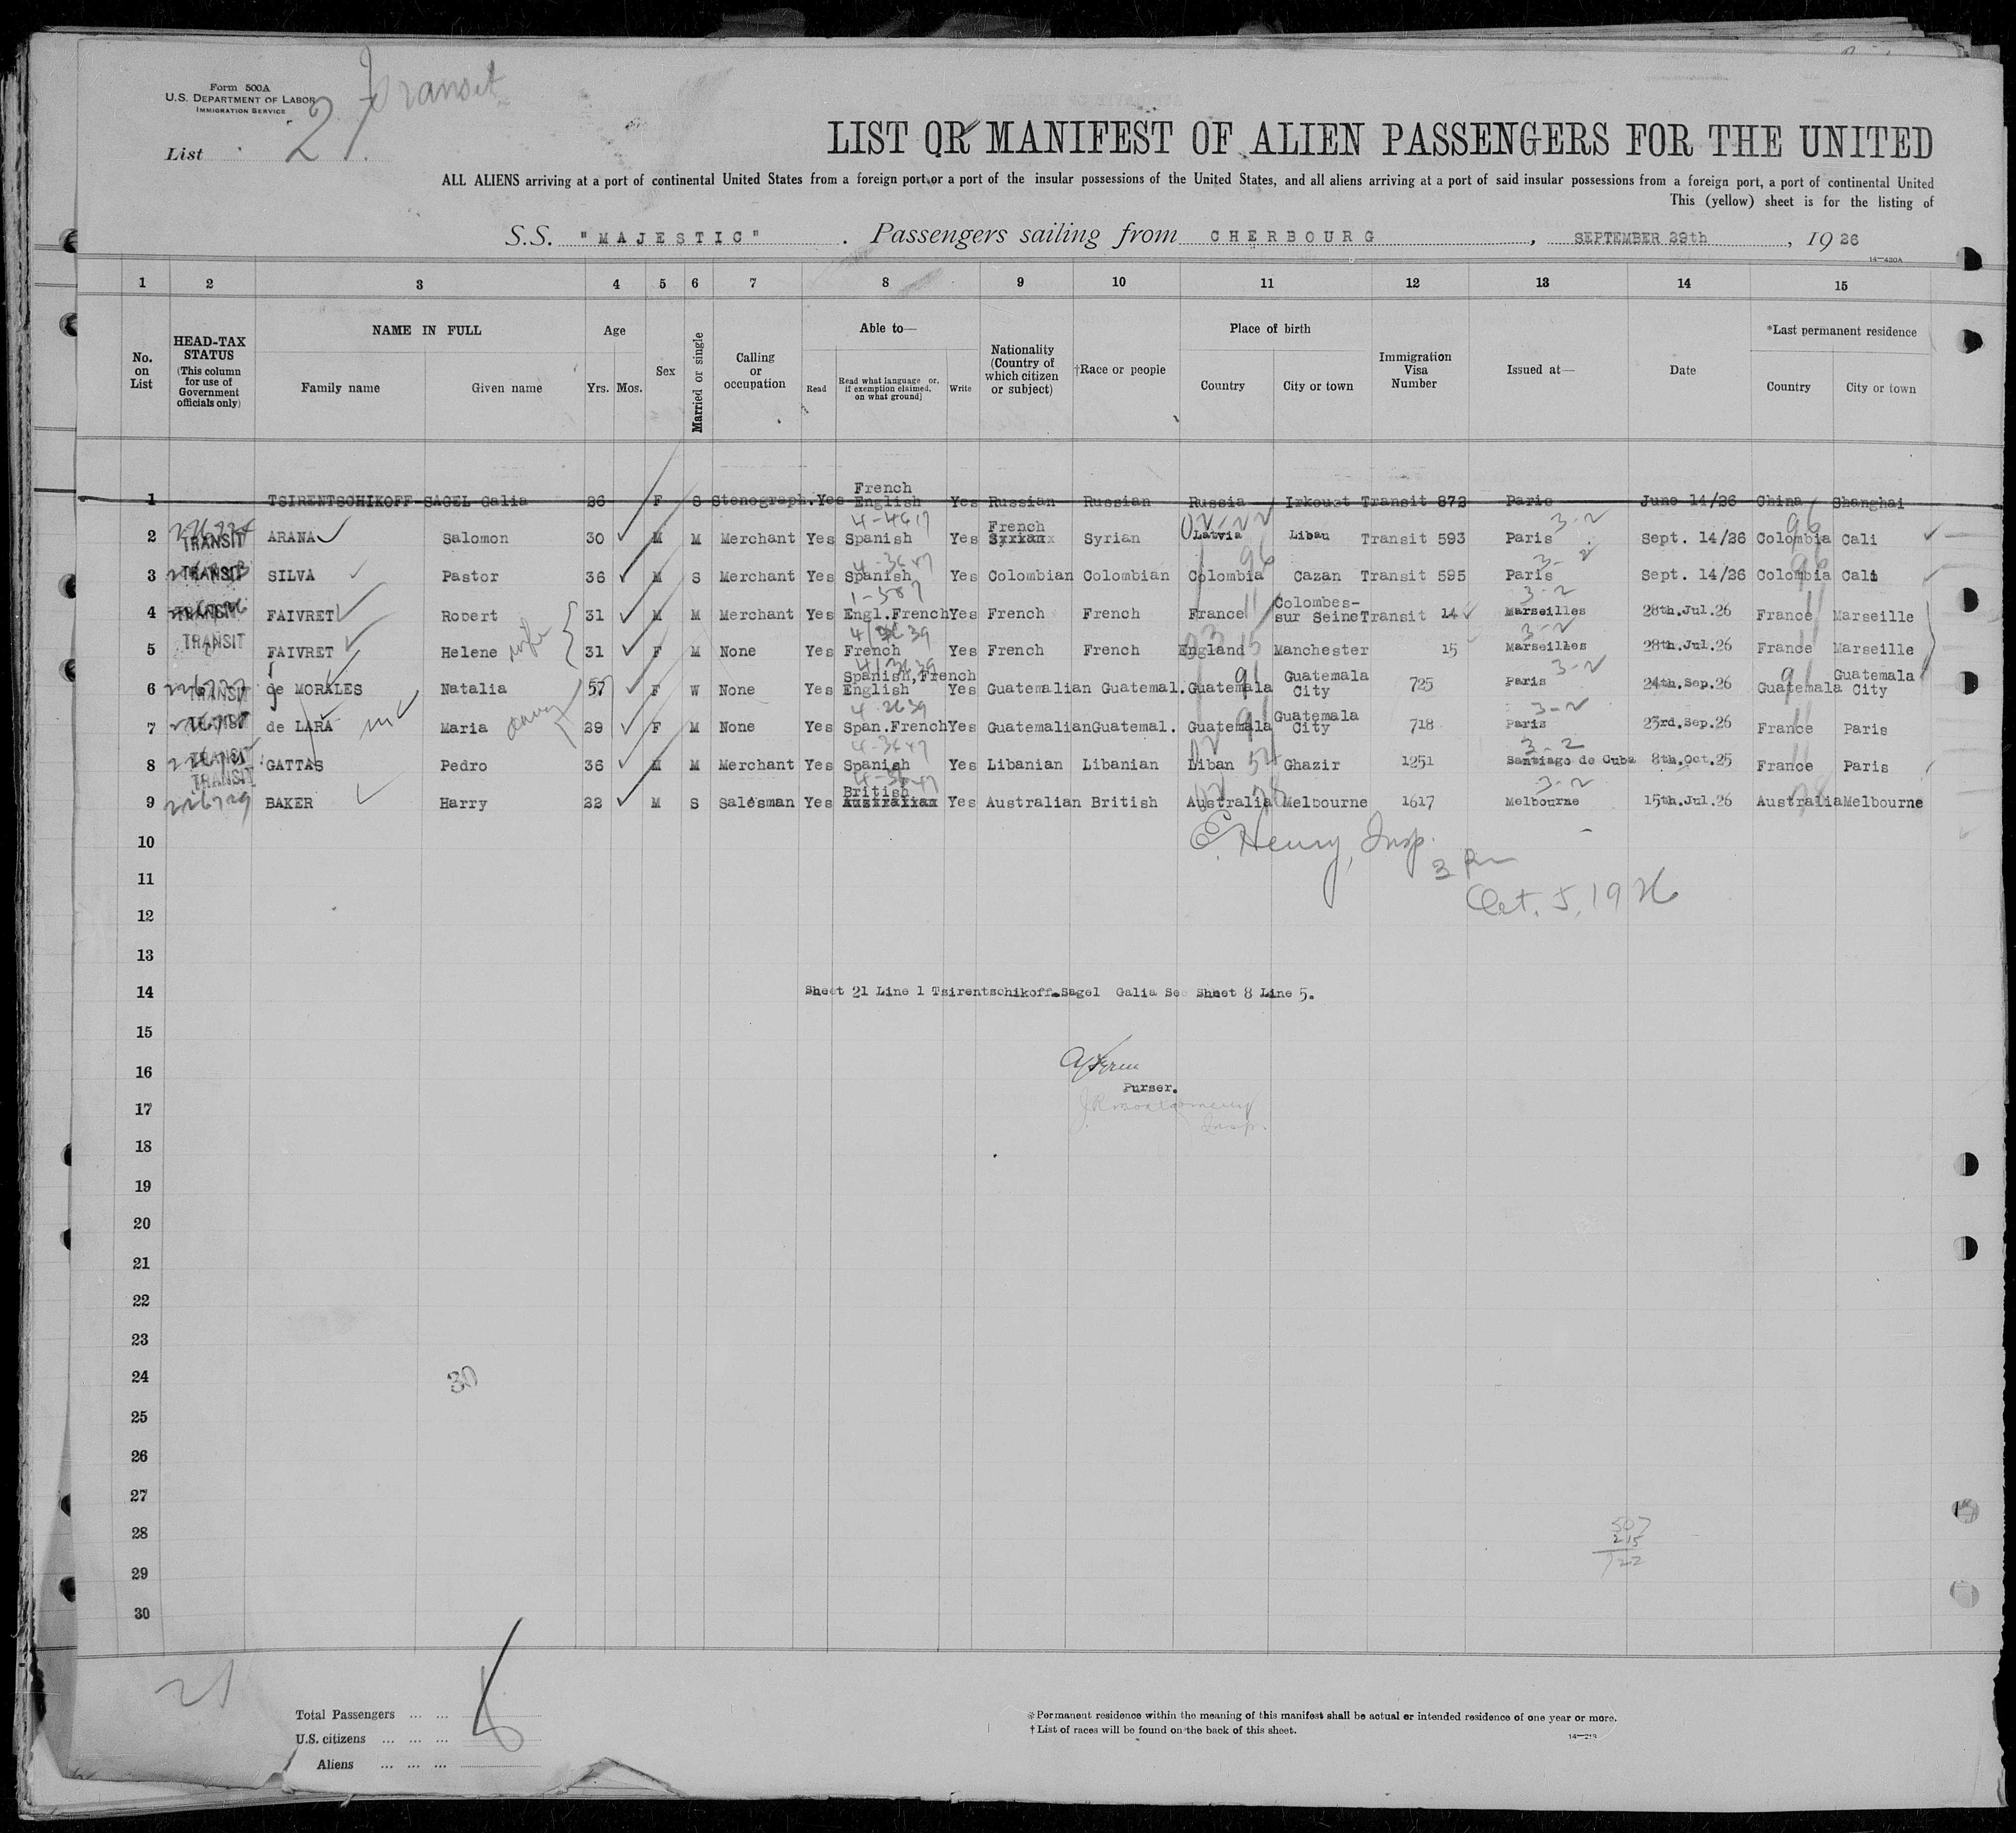 Form 500A
U.S. DEPARTMENT OF LABOR
IMMIGRATION SERVICE
Transit
List 21.
LIST OR MANIFEST OF ALIEN PASSENGERS FOR THE UNITED
ALL ALIENS arriving at a port of continental United States from a foreign port or a port of the insular possessions of the United States, and all aliens arriving at a port of said insular possessions from a foreign port, a port of continental United
This (yellow) sheet is for the listing of
S.S. "MAJESTIC". Passengers sailing from CHERBOURG, SEPTEMBER 29th, 1926
14—430A
1 2 3 4 5 6 7 8 9 10 11 12 13 14 15
No. on List
HEAD-TAX STATUS (This column for use of Government officials only)
NAME IN FULL
Family name Given name
Age
Yrs. Mos.
Sex
Married or single
Calling or occupation
Able to—
Read Read what language [or, if exemption claimed, on what ground] Write
Nationality (Country of which citizen or subject)
†Race or people
Place of birth
Country City or town
Immigration Visa Number
Issued at—
Date
*Last permanent residence
Country City or town
1 TSIRENTSCHIKOFF-SAGEL Galia 26 F S Stenograph. Yes French English Yes Russian Russian Russia Irkouzt Transit 872 Paris June 14/26 China Shanghai
2 TRANSIT ARANA Salomon 30 M M Merchant Yes Spanish Yes French Syrian Latvia Libau Transit 593 Paris Sept. 14/26 Colombia Cali
3 TRANSIT SILVA Pastor 36 M S Merchant Yes Spanish Yes Colombian Colombian Colombia Cazan Transit 595 Paris Sept. 14/26 Colombia Cali
4 TRANSIT FAIVRET Robert 31 M M Merchant Yes Engl.French Yes French French France Colombes-sur Seine Transit 14 Marseilles 28th.Jul.26 France Marseille
5 TRANSIT FAIVRET Helene wife 31 F M None Yes French Yes French French England Manchester 15 Marseilles 28th.Jul.26 France Marseille
6 TRANSIT de MORALES Natalia 57 F W None Yes Spanish,French English Yes Guatemalian Guatemal. Guatemala Guatemala City 725 Paris 24th.Sep.26 Guatemala Guatemala City
7 TRANSIT de LARA Maria 29 F M None Yes Span.French Yes Guatemalian Guatemal. Guatemala Guatemala City 718 Paris 23rd.Sep.26 France Paris
8 TRANSIT GATTAS Pedro 36 M M Merchant Yes Spanish Yes Libanian Libanian Liban Ghazir 1251 Santiago de Cuba 8th.Oct.25 France Paris
9 TRANSIT 226729 BAKER Harry 22 M S Salesman Yes British Australian Yes Australian British Australia Melbourne 1617 Melbourne 15th.Jul.26 Australia Melbourne
10
E. Henry, Insp.
11
3 Pm
Oct. 5, 1926
12
13
14 Sheet 21 Line 1 Tsirentschikoff-Sagel Galia See Sheet 8 Line 5.
15
16
Purser.
17
J.R. Montgomery
Insp.
18
19
20
21
22
23
24 30
25
26
27
28 507
215
29 722
30
21
Total Passengers ... ... 8
U.S. citizens ... ... ...
Aliens ... ... ...
*Permanent residence within the meaning of this manifest shall be actual or intended residence of one year or more.
†List of races will be found on the back of this sheet.
14—213